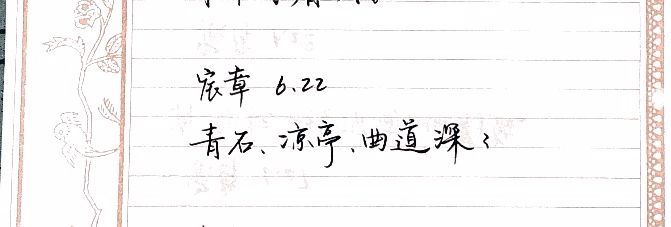 宸章 6.22
青石、凉亭、曲道深;